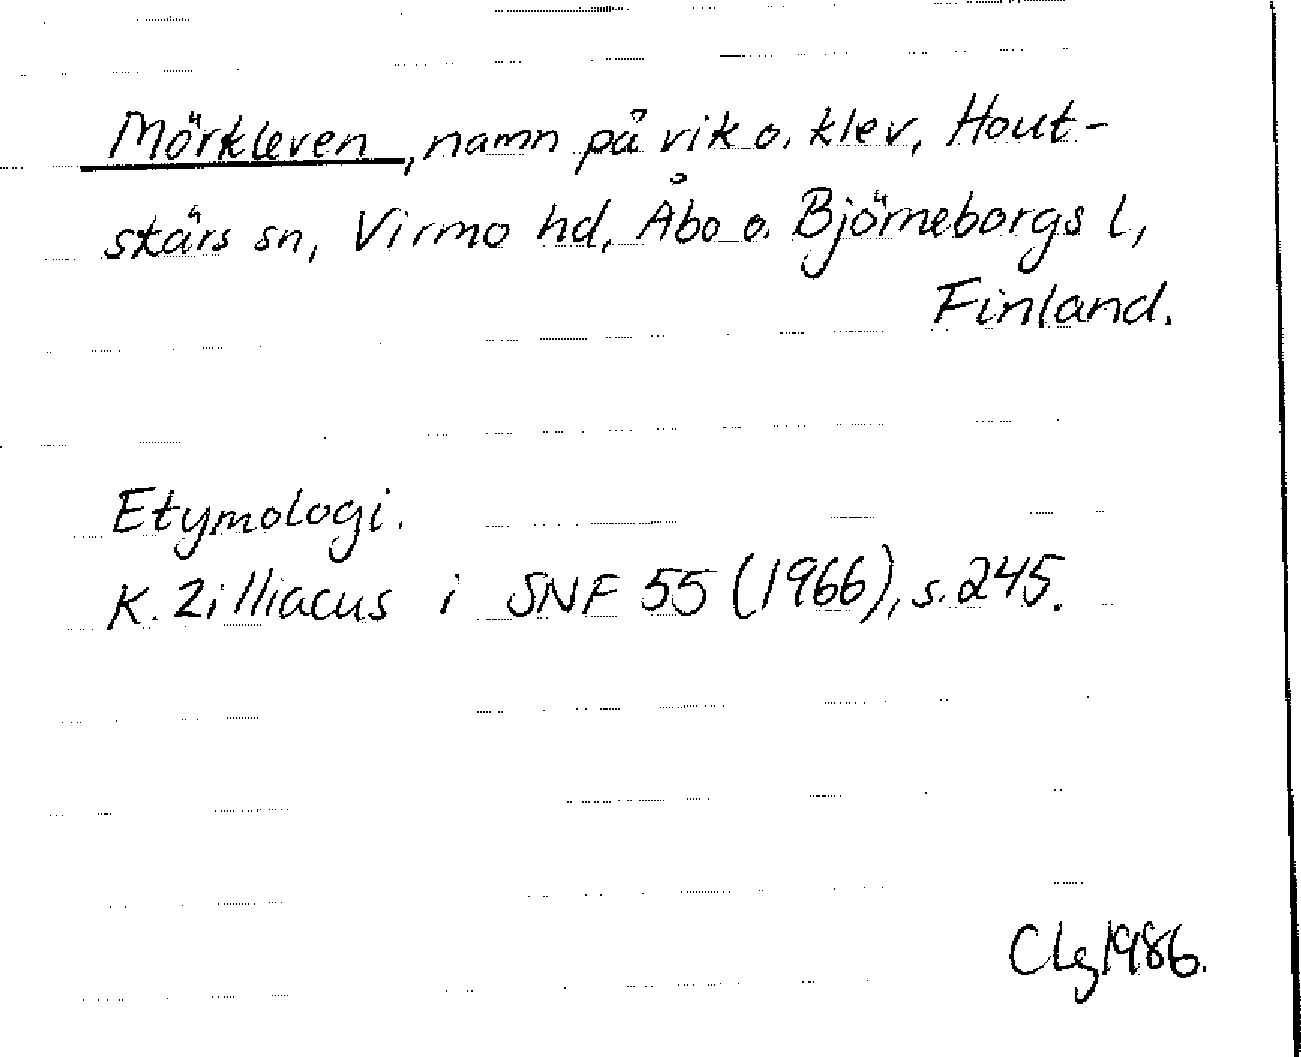 Mörkleven, namn på vik o. klev, Hout-
skärs sn, Virmo hd, Åbo o. Björneborgs l,
Finland.
Etymologi.
K. Zilliacus i SNF 55 (1966), s. 245.
CLg 1986.